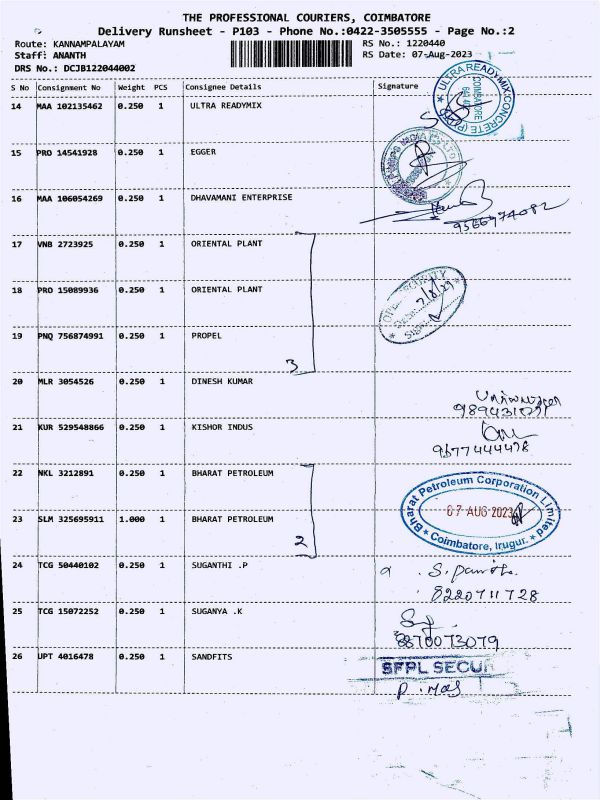 THE PROFESSIONAL COURIERS, COIMBATORE
Delivery Runsheet - P103 - Phone No.:0422-3505555 - Page No.:2
Route: KANNAMPALAYAM RS No.: 1220440
Staff: ANANTH RS Date: 07-Aug-2023
DRS No.: DCJB122044002
S No Consignment No Weight PCS Consignee Details Signature
14 MAA 102135462 0.250 1 ULTRA READYMIX
ULTRA READYMIX CONCRETE (P)
COIMBATORE
15 PRO 14541928 0.250 1 EGGER
16 MAA 106054269 0.250 1 DHAVAMANI ENTERPRISE
9566974082
17 VNB 2723925 0.250 1 ORIENTAL PLANT
18 PRO 15089936 0.250 1 ORIENTAL PLANT
SECURITY
19 PNQ 756874991 0.250 1 PROPEL
3
20 MLR 3054526 0.250 1 DINESH KUMAR
21 KUR 529548866 0.250 1 KISHOR INDUS
9677444478
22 NKL 3212891 0.250 1 BHARAT PETROLEUM
Bharat Petroleum Corporation Limited
07 AUG 2023
Coimbatore, Irugur.
23 SLM 325695911 1.000 1 BHARAT PETROLEUM
2
24 TCG 50440102 0.250 1 SUGANTHI .P
8220711728
25 TCG 15072252 0.250 1 SUGANYA .K
8870073079
26 UPT 4016478 0.250 1 SANDFITS
SFPL SECUR